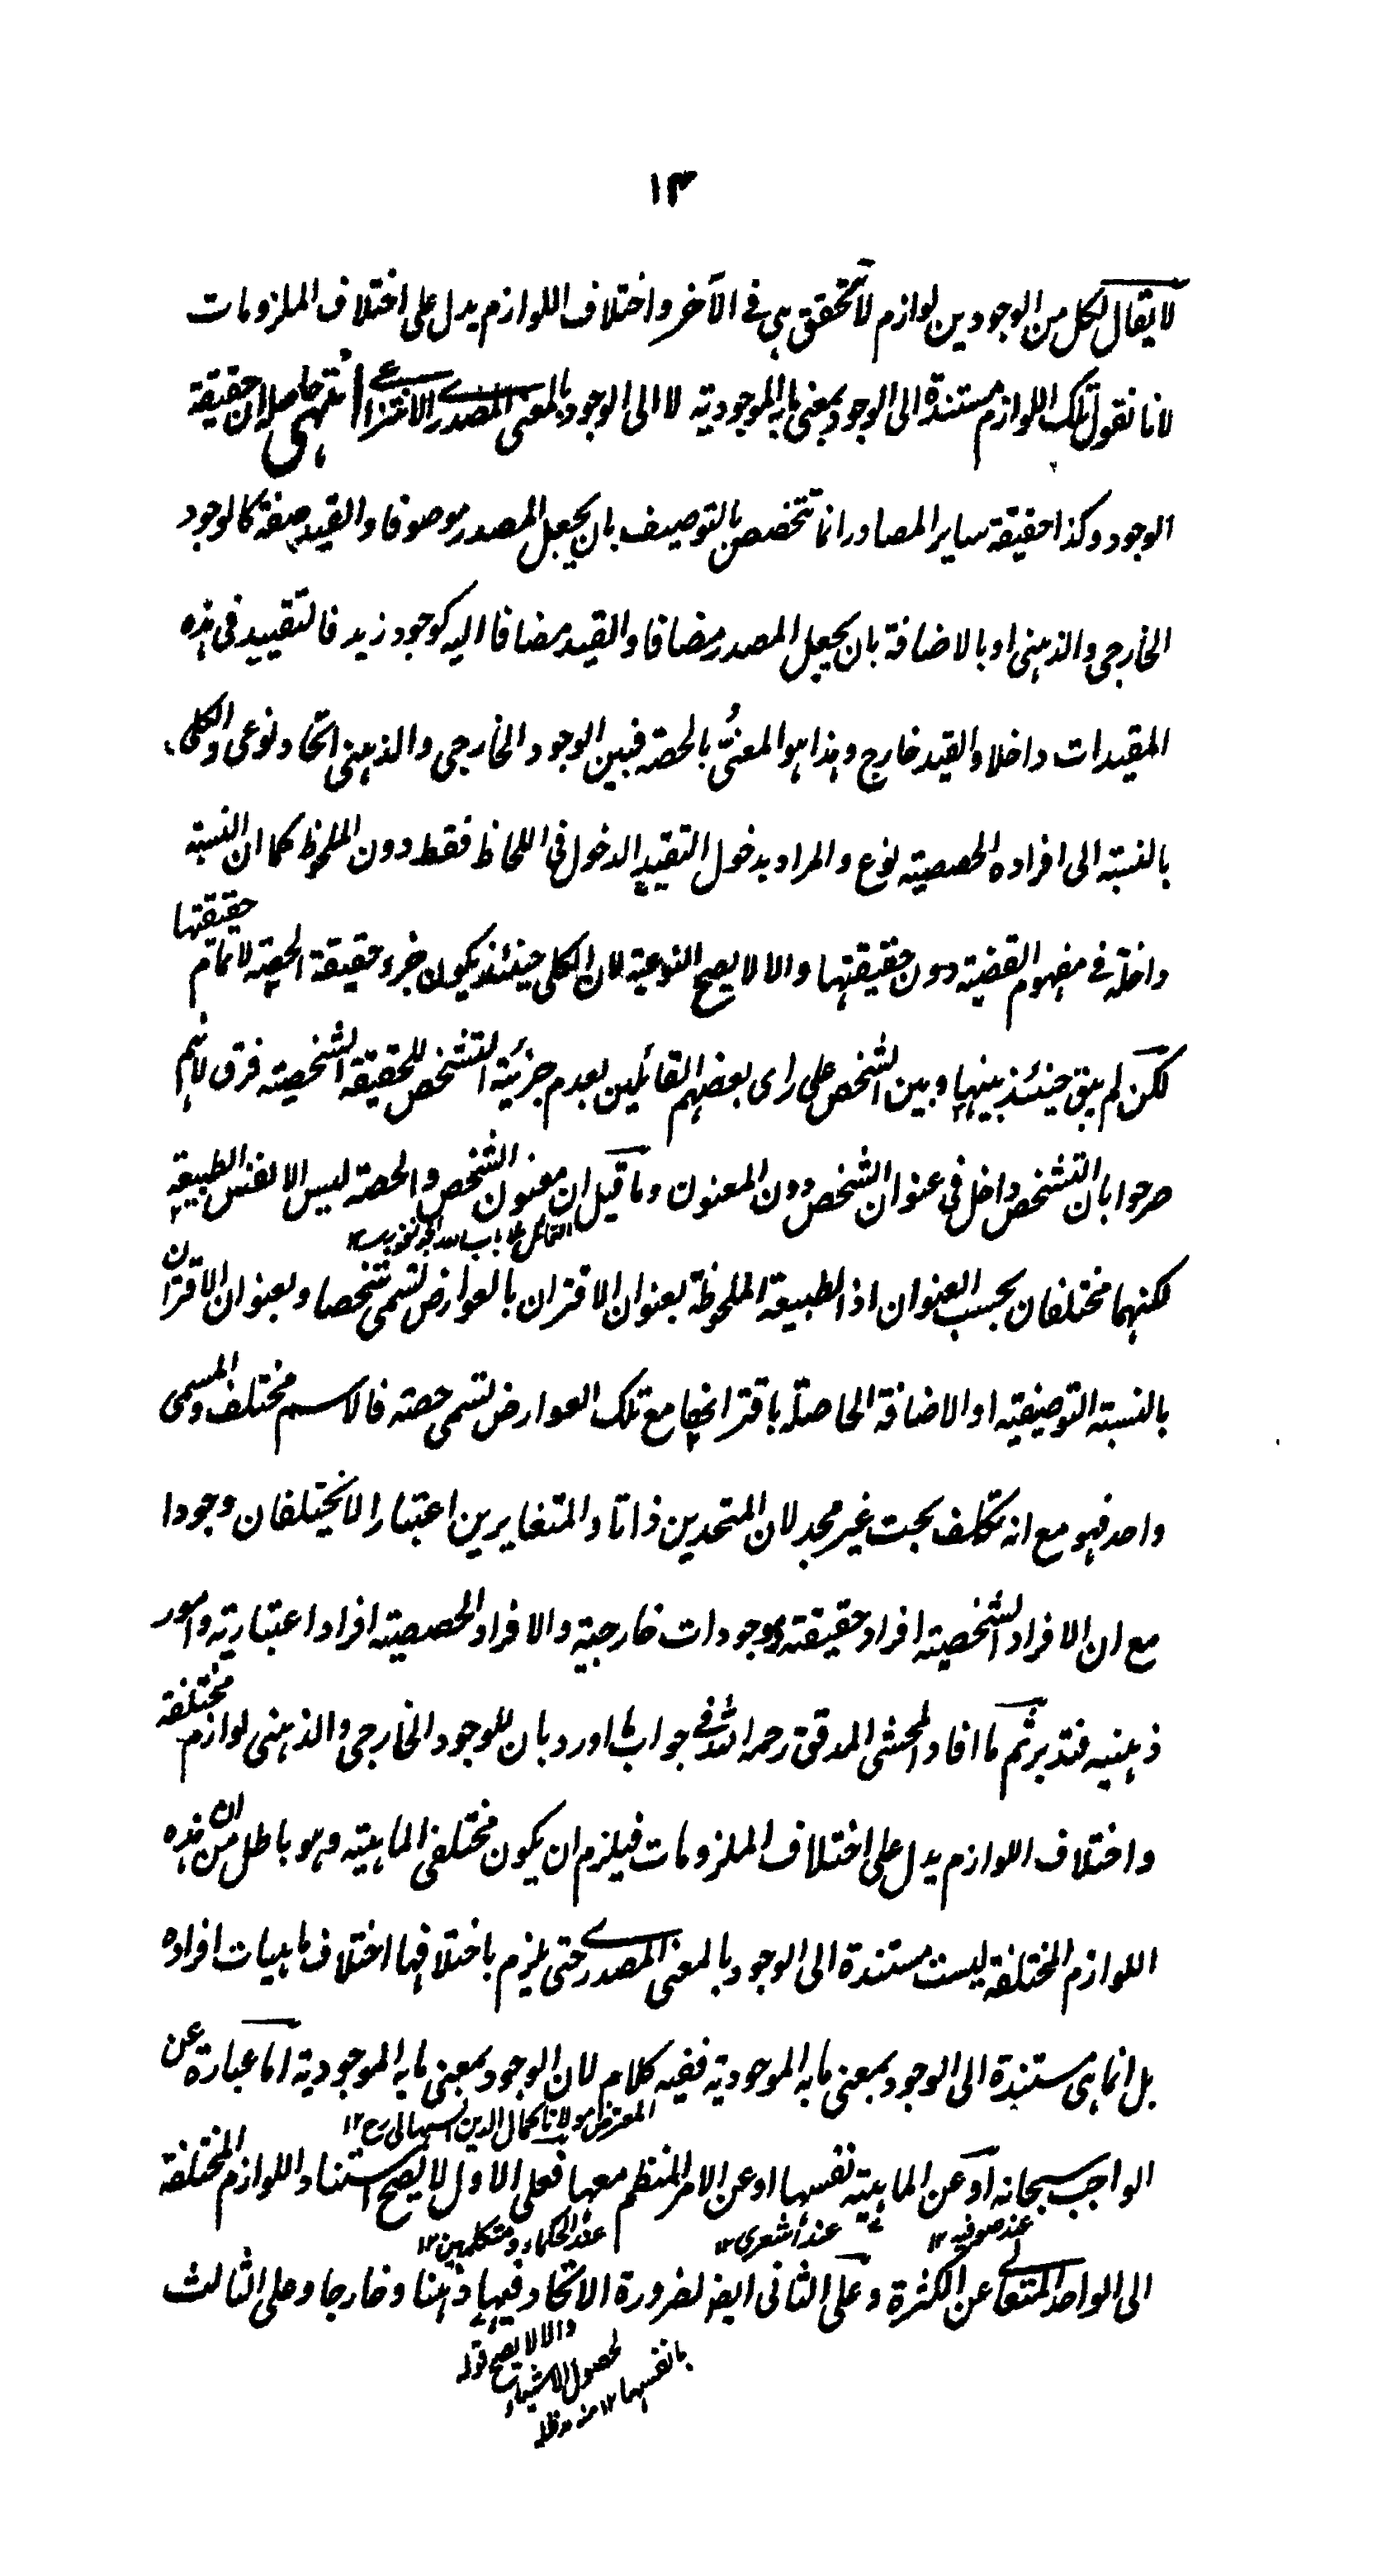 ١٣
لا يقال لكل من الوجودين لوازم لا تحقق هى فى الآخر واختلاف اللوازم يدل على اختلاف الملزومات
لانا نقول تلك اللوازم مستندة الى الوجود بمعنى ما به الموجودية لا الى الوجود بالمعنى المصدرے الانتزاعے انتهى حاصله ان حقيقة
الوجود وكذا حقيقة ساير المصادر انما تتخصص بالتوصيف بان يجعل المصدر موصوفا والقيد صفة كالوجود
الخارجى والذهنى او بالاضافة بان يجعل المصدر مضافا والقيد مضافا اليه كوجود زيد فالتقييد فى هذه
المقيدات داخلا والقيد خارج وهذا هو المعنىّ بالحصة فبين الوجود الخارجى والذهنى اتحاد نوعى والكلى
بالنسبة الى افراده الحصصية نوع والمراد بدخول التقييد الدخول فى اللحاظ فقط دون الملحوظ كما ان النسبة
داخلة فى مفهوم القضية دون حقيقتها والا لا يصح النوعية لان الكلى حينئذ يكون جزء حقيقة الحصة لا تمام حقيقتها
لكن لم يبق حينئذ بينها وبين الشخص على راى بعضهم القائلين بعدم جزئية التشخص للحقيقة الشخصية فرق لانهم
صرحوا بان التشخص داخل فى عنوان الشخص دون المعنون وما قيل ان معنون الشخص والحصة ليس الا نفس الطبيعة
لكنهما مختلفان بحسب العنوان اذ الطبيعة الملحوظة بعنوان الاقتران بالعوارض تسمى شخصا وبعنوان الاقتران
بالنسبة التوصيفية او الاضافة الحاصلة باقترانها مع تلك العوارض تسمى حصة فالاسم مختلف والمسمى
واحد فهو مع انه تكلف بحت غير مجد لان المتحدين ذاتا والمتغايرين اعتبارا لا يختلفان وجودا
مع ان الافراد الشخصية افراد حقيقة وموجودات خارجية والافراد الحصصية افراد اعتبارية وامور
ذهنية فتدبر ثم ما افاد المحشى المدقق رحمه الله فے جواب ما اورد بان للوجود الخارجى والذهنى لوازم مختلفة
واختلاف اللوازم يدل على اختلاف الملزومات فيلزم ان يكون مختلفى الماهية وهو باطل من ان هذه
اللوازم المختلفة ليست مستندة الى الوجود بالمعنى المصدرے حتى يلزم باختلافها اختلاف ماهيات افراده
بل انما هى مستندة الى الوجود بمعنى ما به الموجودية ففيه كلام لان الوجود بمعنى ما به الموجودية اما عبارة عن
المعترض مولانا كمال الدين السهالى رح ١٢
الواجب سبحانه او عن الماهية نفسها او عن الامر المنظم معها فعلى الاول لا يصح استناد اللوازم المختلفة
عند صوفيه ١٢ عند اشعرى ١٢ عند الحكماء ومتكلمين ١٢
الى الواحد المتعالے عن الكثرة وعلى الثانى ايضا لضرورة الاتحاد فيها ذهنا وخارجا وعلى الثالث
والا لا يصح قوله
لحصول الاشياء
بانفسها ١٢ منه